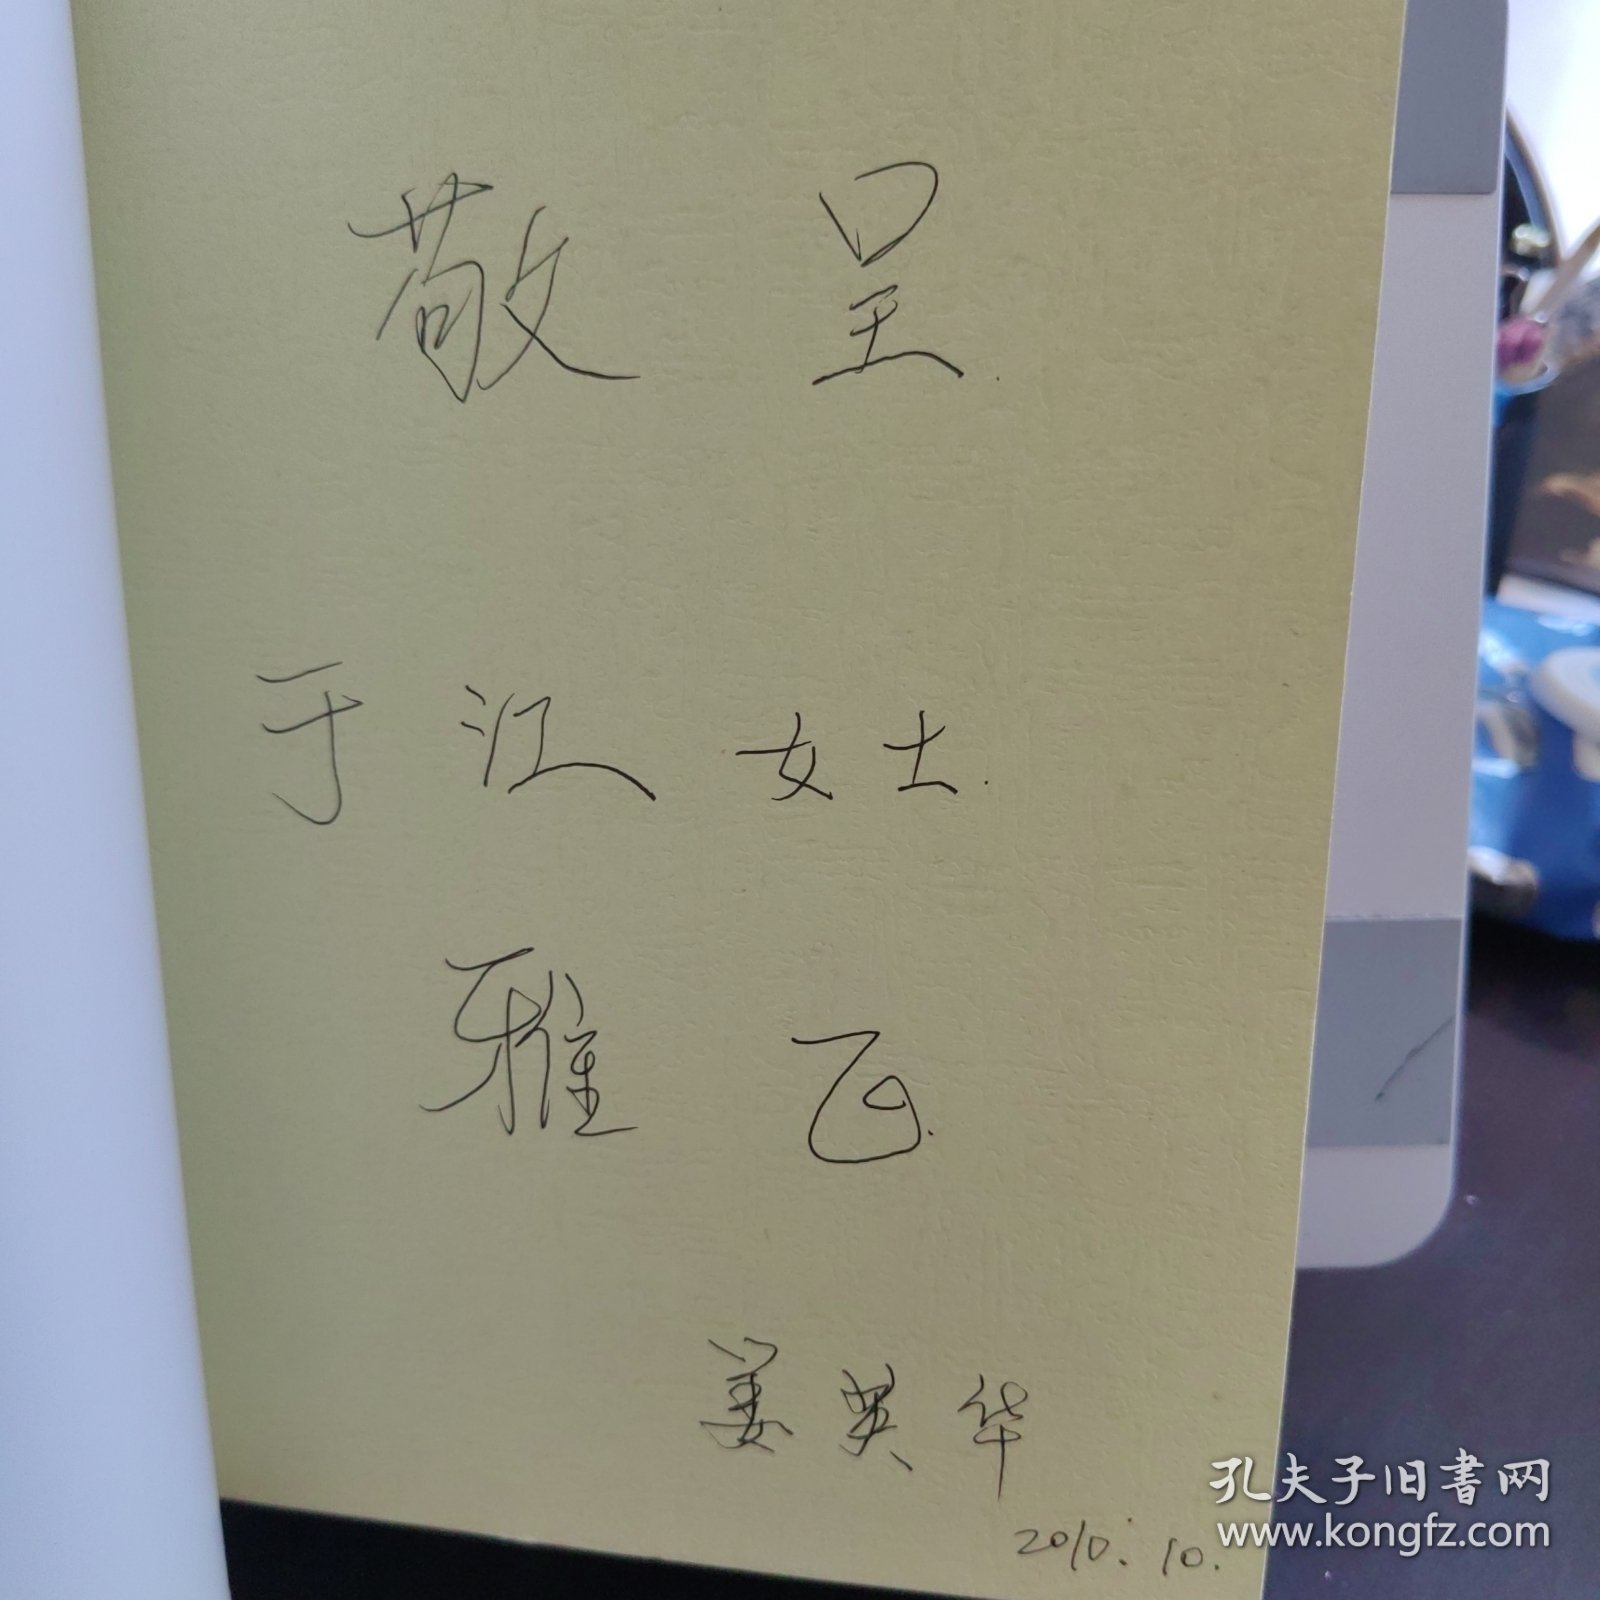 敬呈
于江女士
雅正
姜英华
2010.10.
孔夫子旧书网
www.kongfz.com